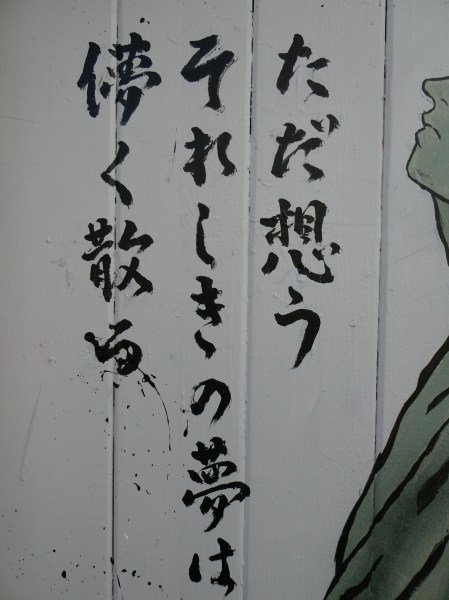 ただ想う
それしきの夢は
儚く散る